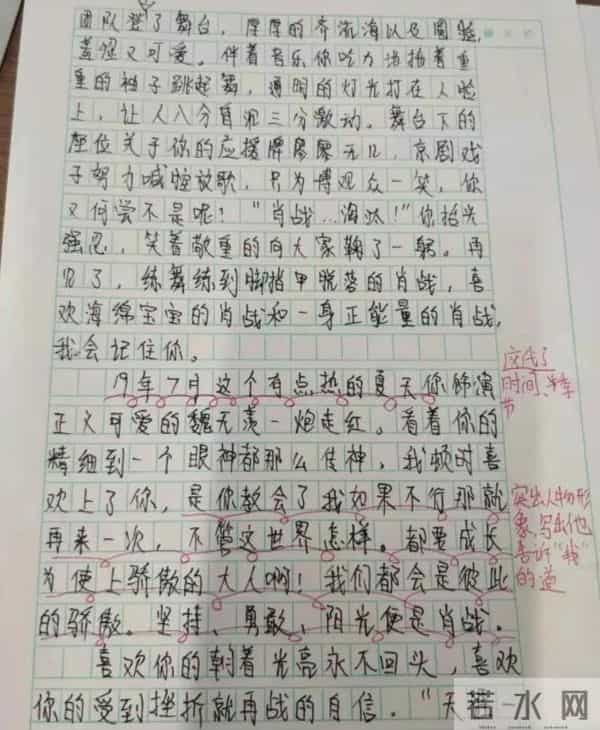 团队登了舞台，厚厚的齐流海以及圆脸，
羞涩又可爱。伴着音乐你吃力地抬着重
重的袖子跳起舞，通明的灯光打在人脸
上，让人八分自泥三分激动。舞台下的
座位关于你的应援牌屡屡无几，京剧戏
子努力喊腔放歌，只为博观众一笑，你
又何尝不是呢！“肖战…淘汰！”你掐光
强忍，笑着敬重的向大家鞠了一躬。再
见了，练舞练到脚指甲脱落的肖战，喜
欢海绵宝宝的肖战和一身正能量的肖战，
我会记住你。
19年7月这个有点热的夏天你饰演
正义可爱的魏无羡一炮走红。看着你的
精细到一个眼神都那么传神，我顿时喜
欢上了你，是你教会了我如果不行那就
再来一次，不管这世界怎样。都要成长
为使上骄傲的大人啊！我们都会是彼此
的骄傲。坚持、勇敢、阳光便是肖战。
喜欢你的朝着光亮永不回头，喜欢
你的受到挫折就再战的自信。“天
交代了
时间、季
节
突出人物形
象，写出他
告诉“我”
的道
苦水网